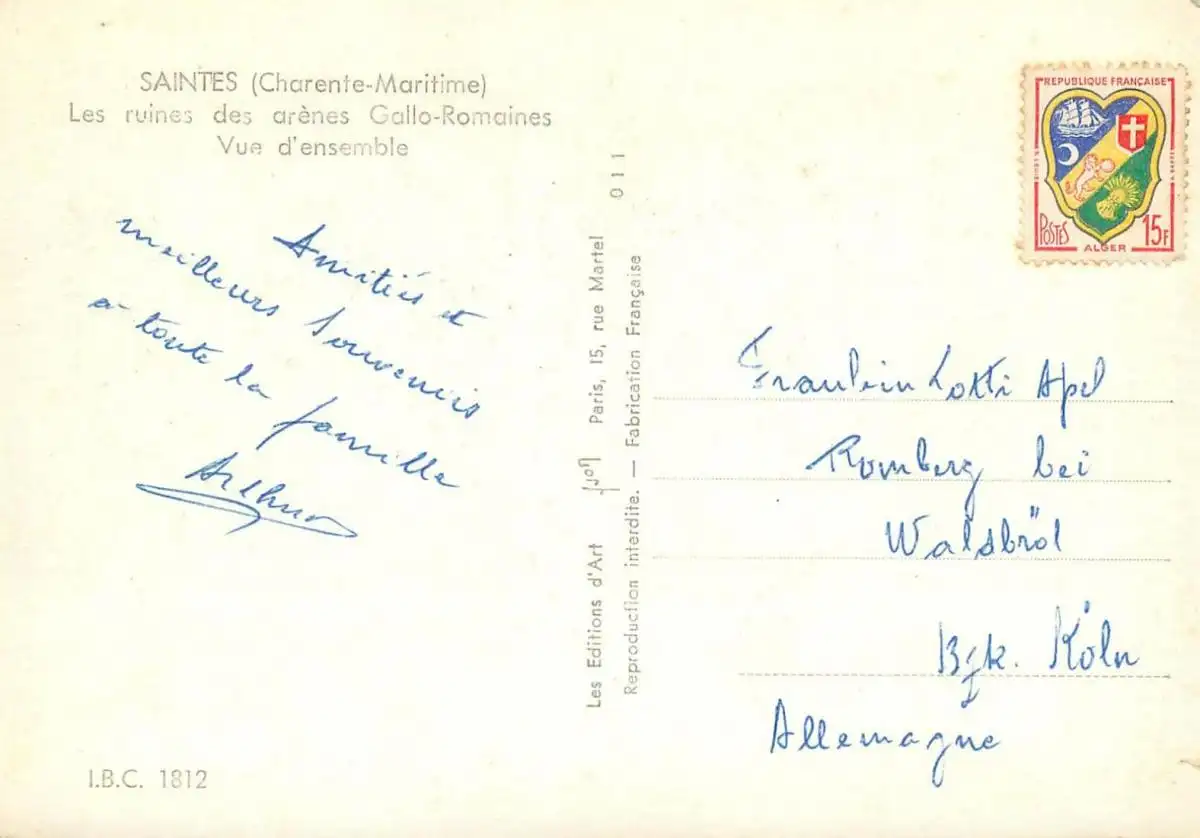 SAINTES (Charente-Maritime)
Les ruines des arènes Gallo-Romaines
Vue d'ensemble
Amitiés et
meilleurs Souvenirs
à toute la famille
Arthur
I.B.C. 1812
Les Editions d'Art Yvon Paris, 15, rue Martel
Reproduction interdite. — Fabrication Française
011
REPUBLIQUE FRANÇAISE
POSTES
ALGER
15F
Fraulein Lotti Apel
Romberg bei
Waldsbröl
Bzk. Köln
Allemagne